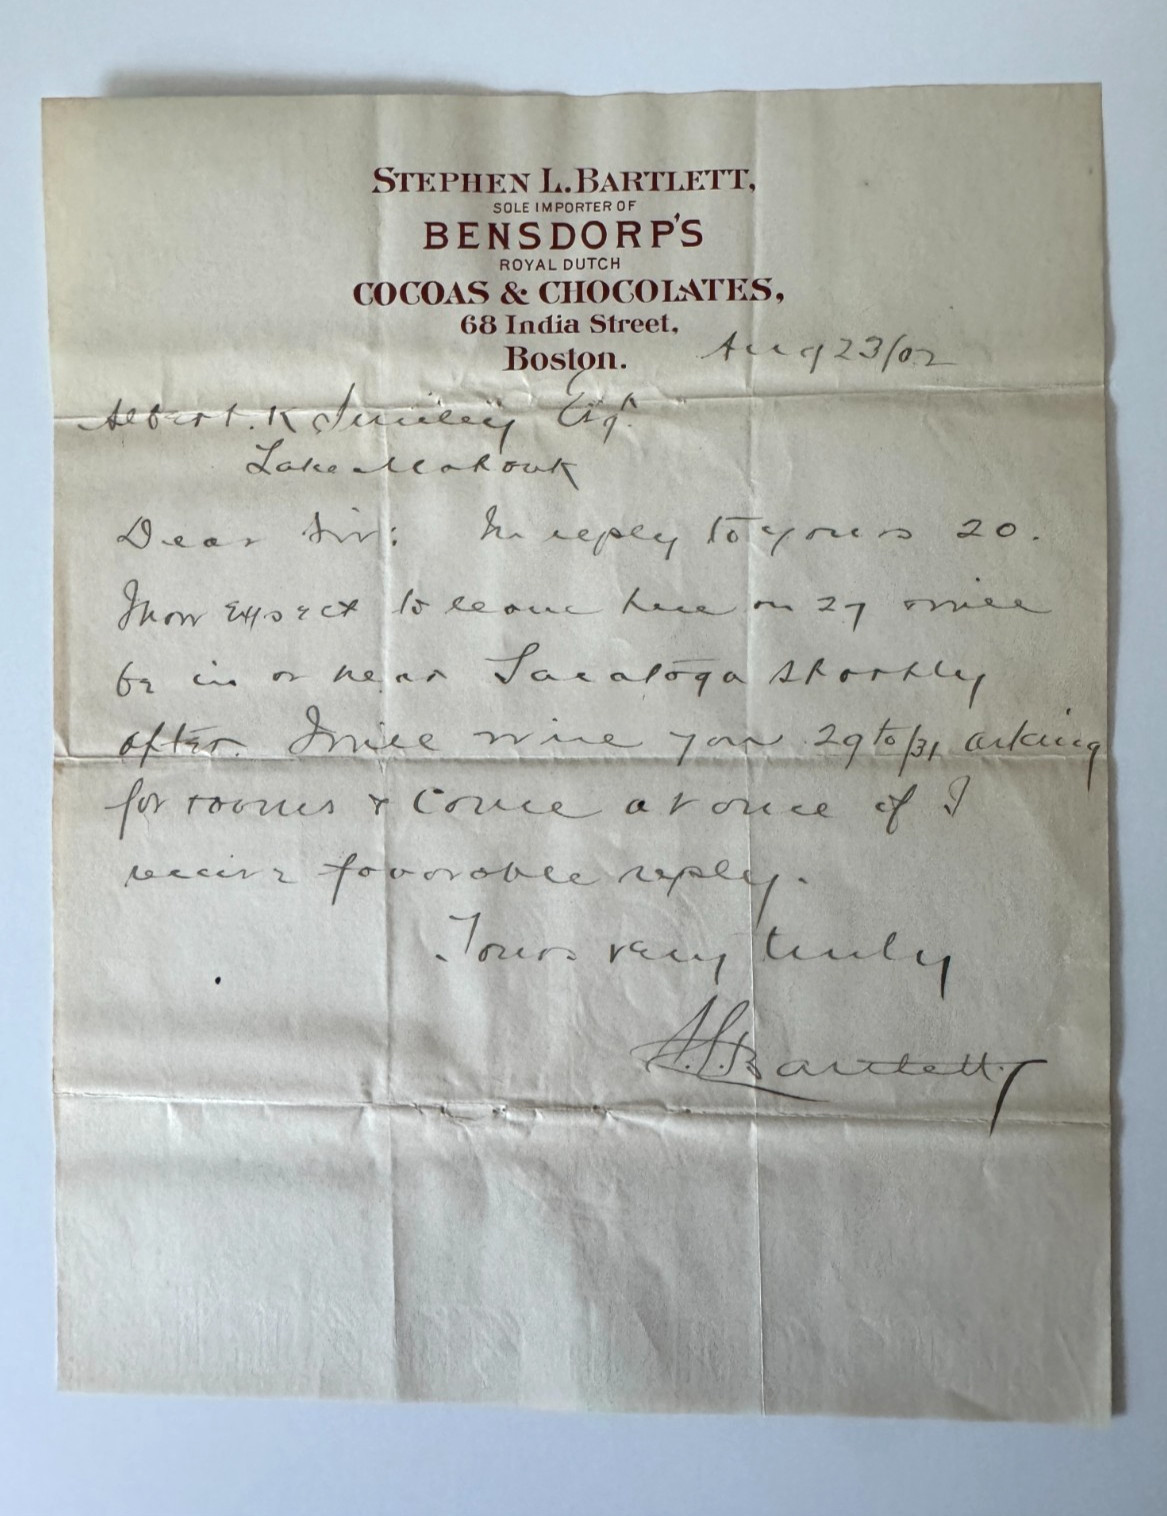 STEPHEN L. BARTLETT,
SOLE IMPORTER OF
BENSDORP'S
ROYAL DUTCH
COCOAS & CHOCOLATES,
68 India Street,
Boston.
Aug 23/02
Albert. K Smiley Esq.
Lake Mohonk
Dear Sir: In reply to yours 20.
I now expect to leave here on 27 & will
be in or near Saratoga shortly
after. I will wire you 29 to/31 asking
for rooms & come at once if I
receive favorable reply.
Yours very truly
S.L. Bartlett